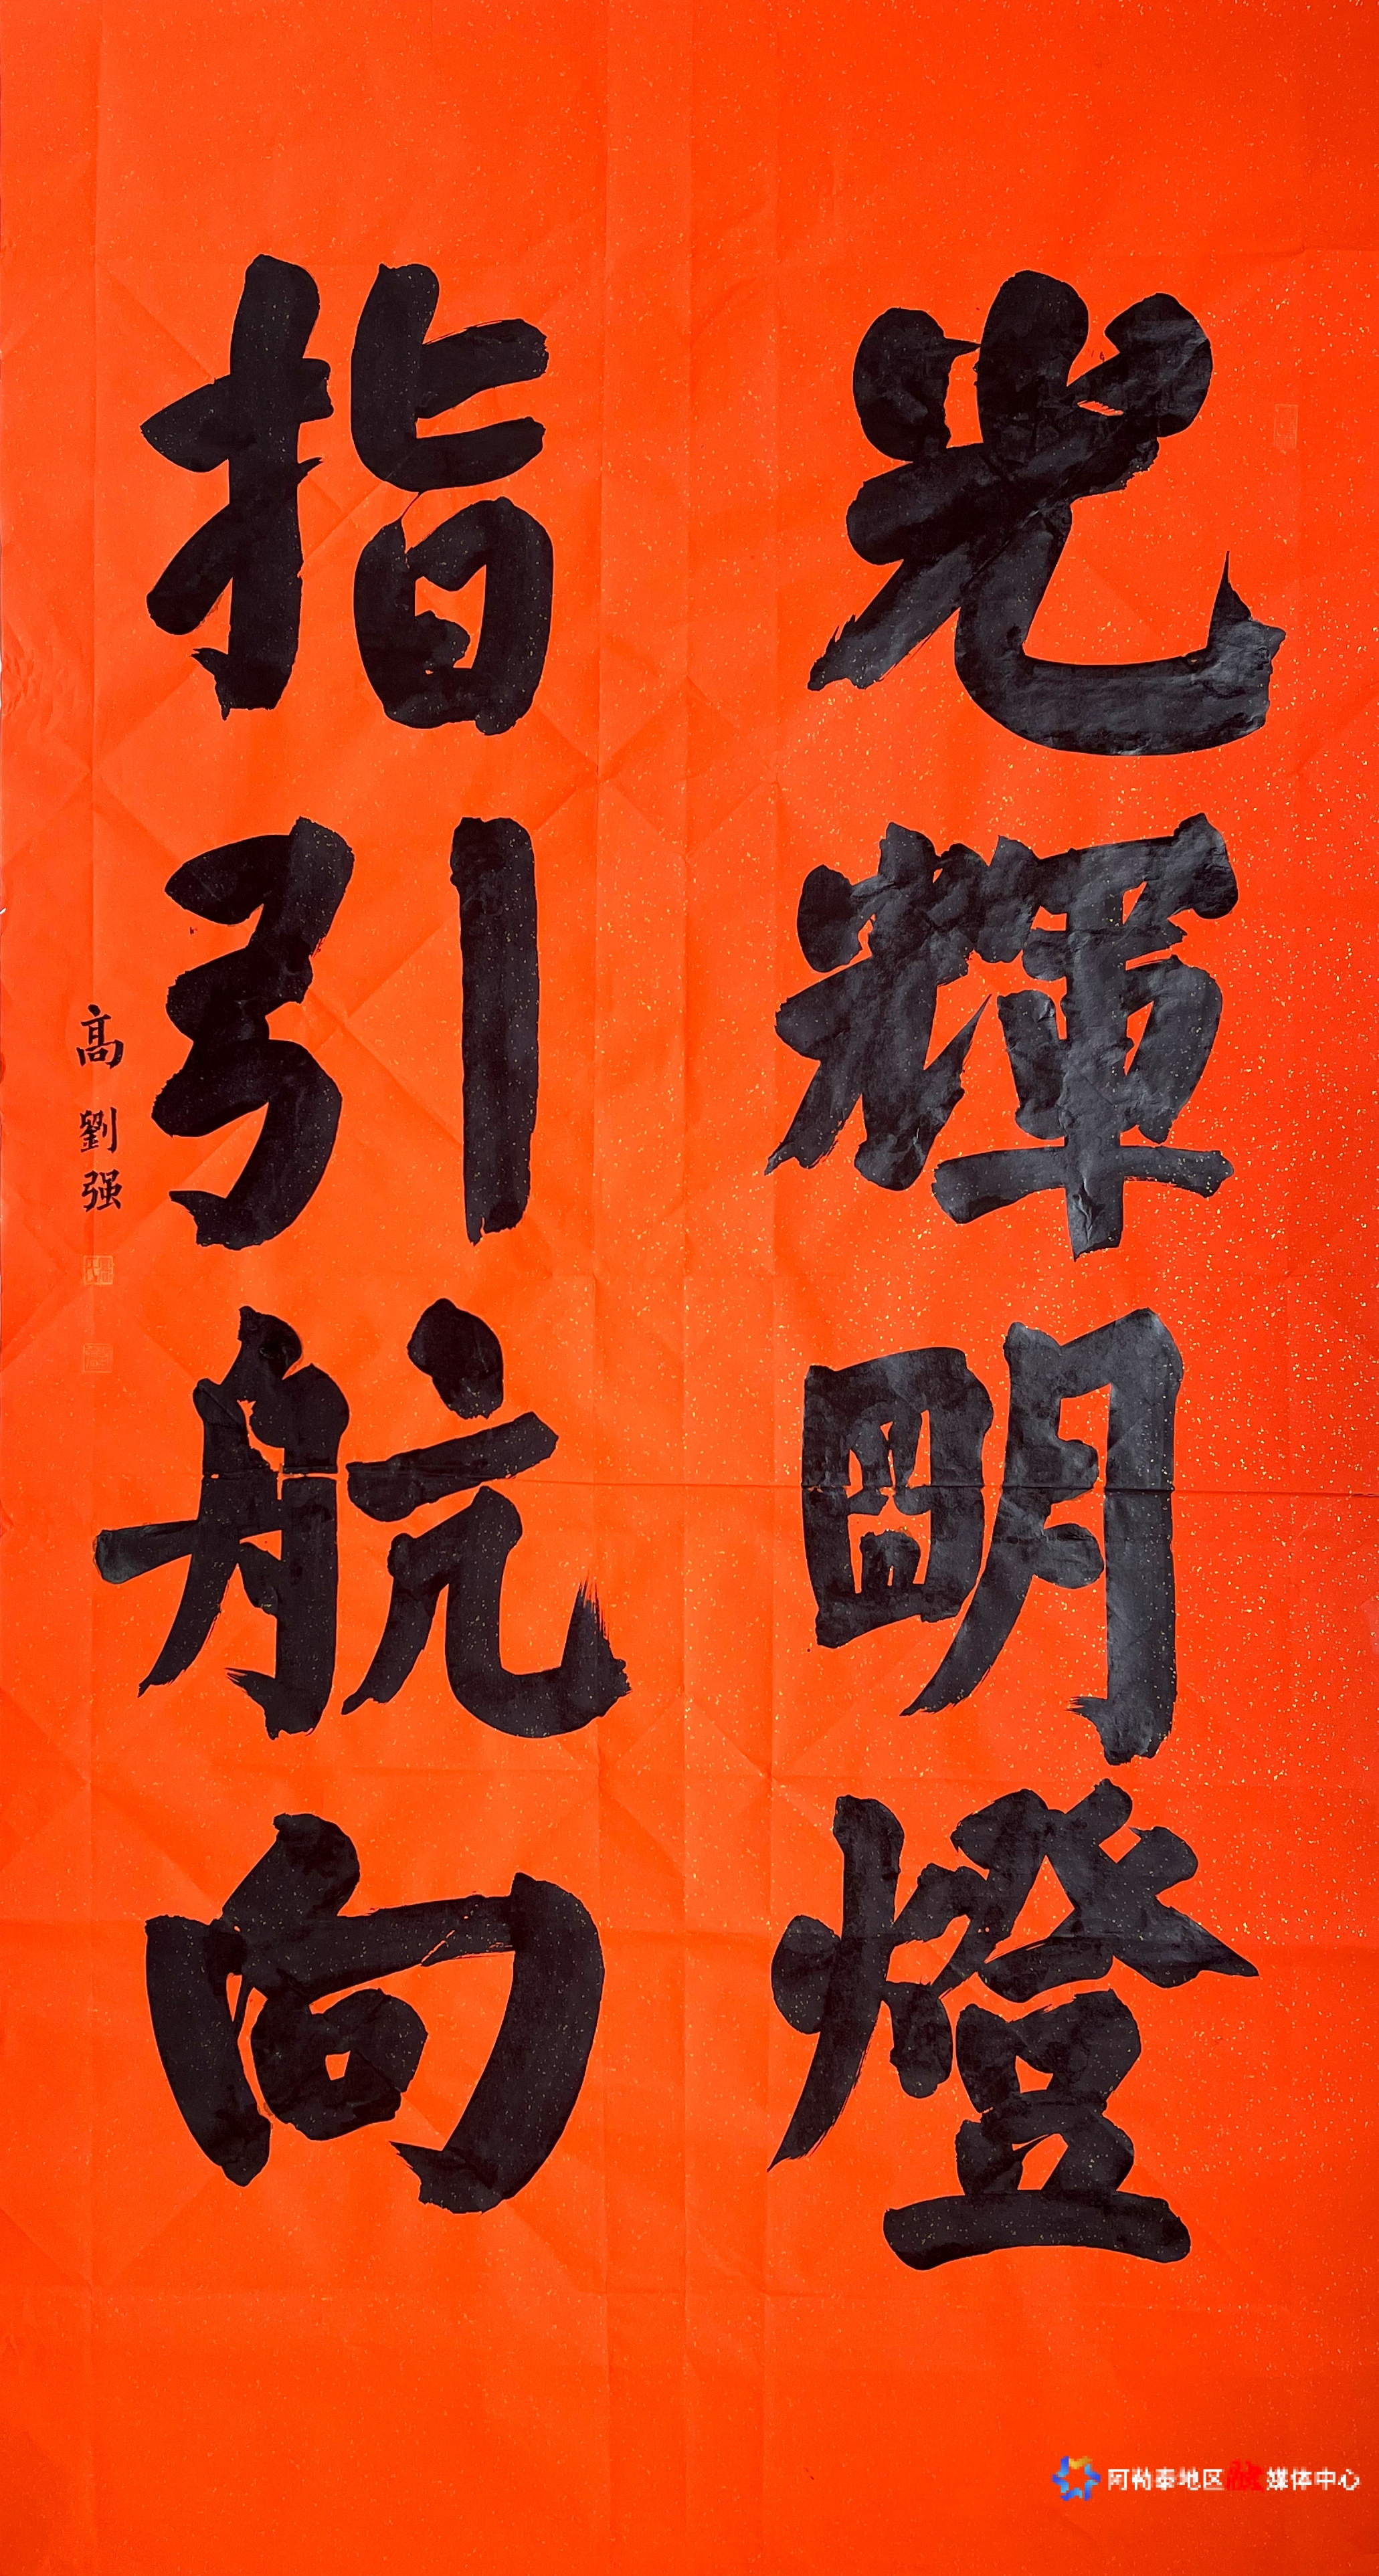 光輝明燈
指引航向
高劉强
阿勒泰地区融媒体中心